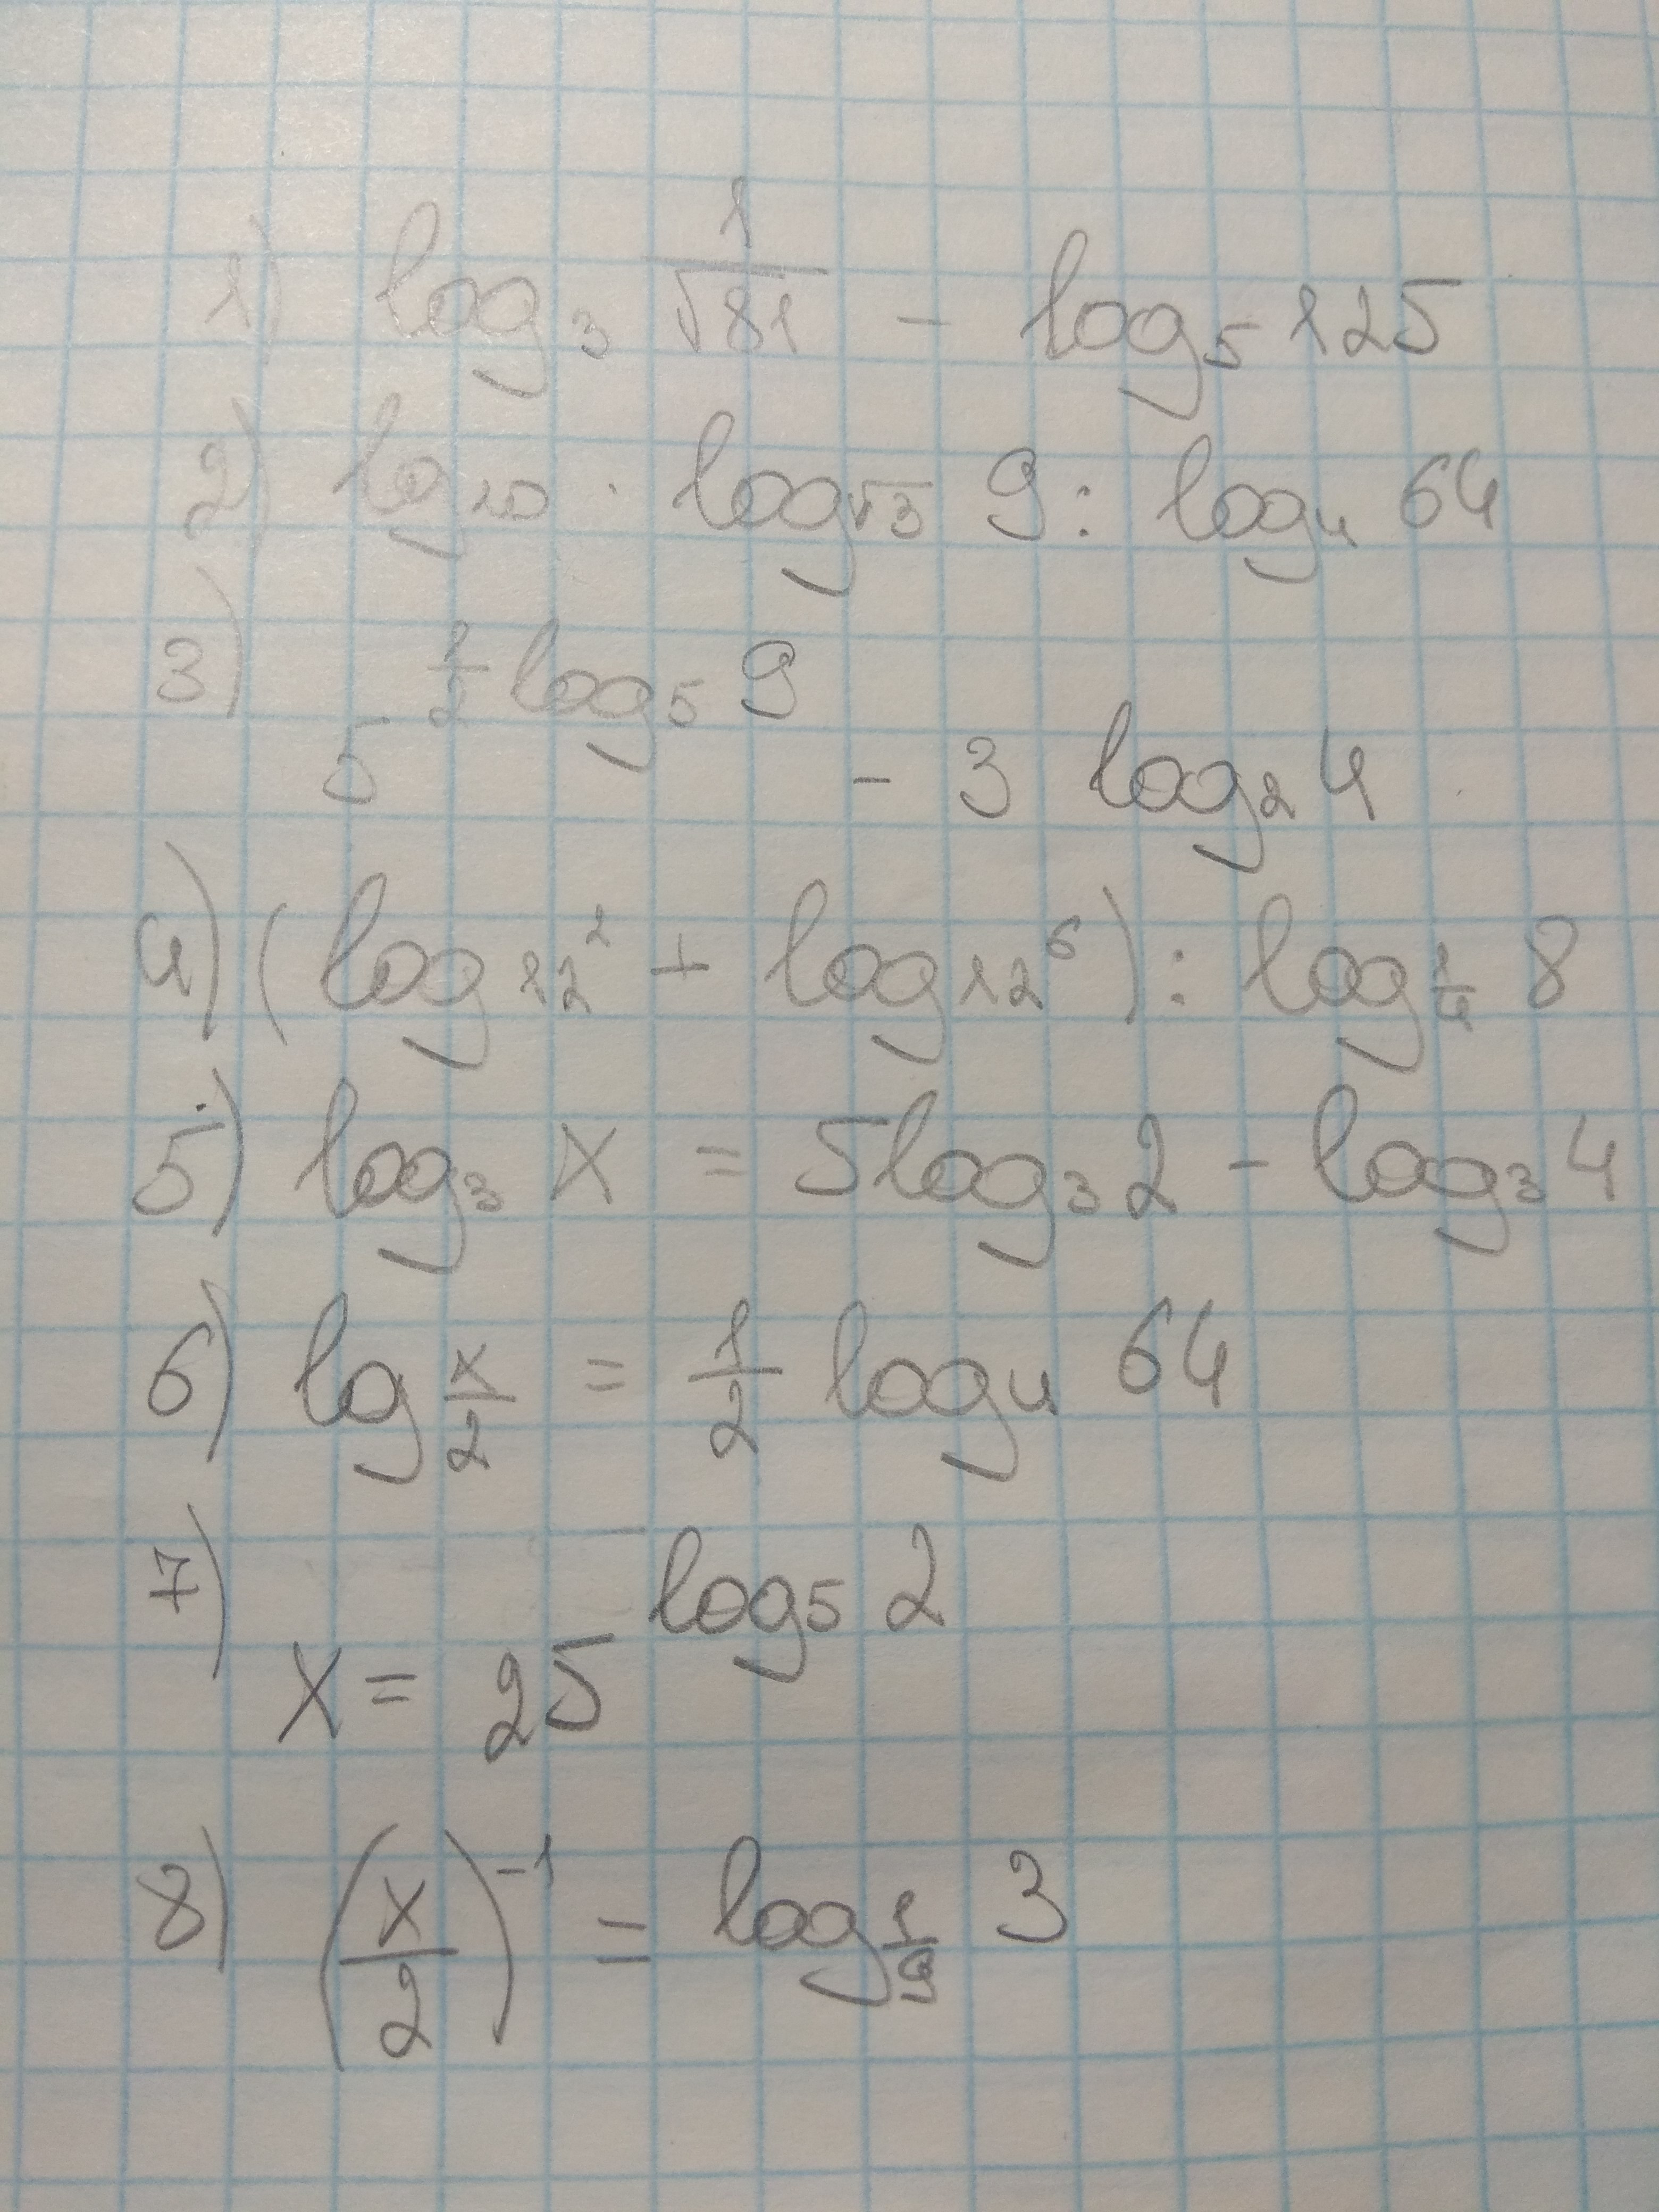 1) log₃ 1/√81 - log₅ 125
2) lg 10 · log_√3 9 : log₄ 64
3) 5^(1/2 log₅ 9) - 3 log₂ 4
4) (log₁₂ 2 + log₁₂ 6) : log_1/4 8
5) log₃ x = 5log₃ 2 - log₃ 4
6) lg x/2 = 1/2 log₄ 64
7) x = 25^(log₅ 2)
8) (x/2)⁻¹ = log_1/9 3